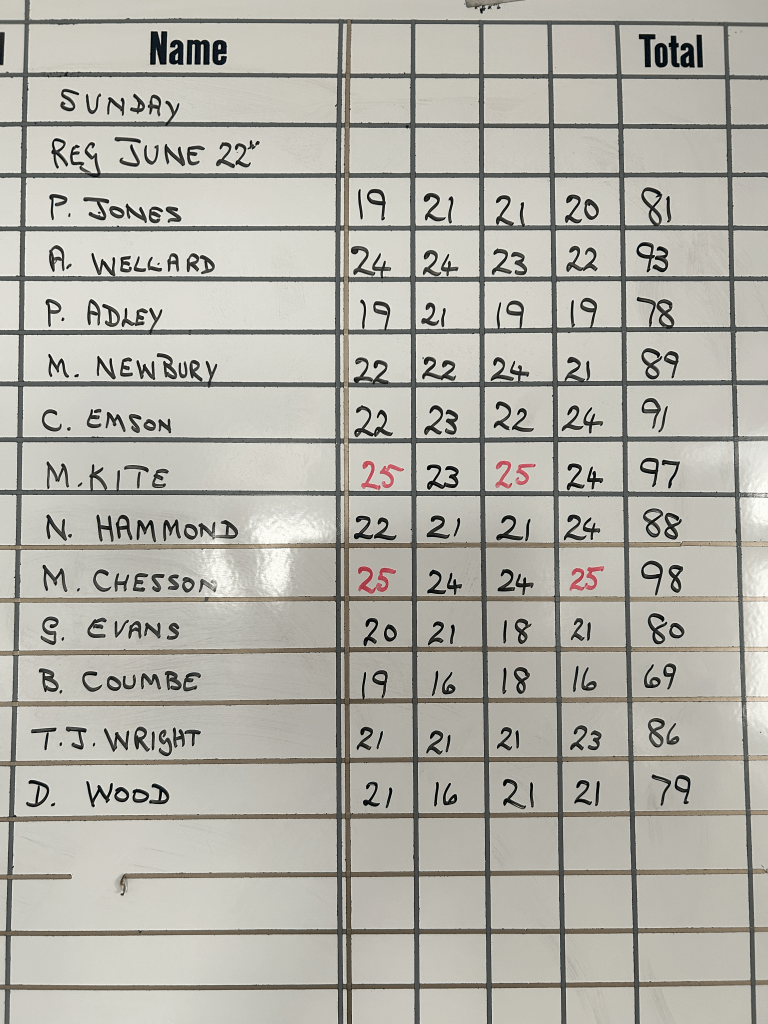 Name Total
SUNDAY
REG JUNE 22nd
P. JONES 19 21 21 20 81
A. WELLARD 24 24 23 22 93
P. ADLEY 19 21 19 19 78
M. NEWBURY 22 22 24 21 89
C. EMSON 22 23 22 24 91
M. KITE 25 23 25 24 97
N. HAMMOND 22 21 21 24 88
M. CHESSON 25 24 24 25 98
G. EVANS 20 21 18 21 80
B. COUMBE 19 16 18 16 69
T.J. WRIGHT 21 21 21 23 86
D. WOOD 21 16 21 21 79